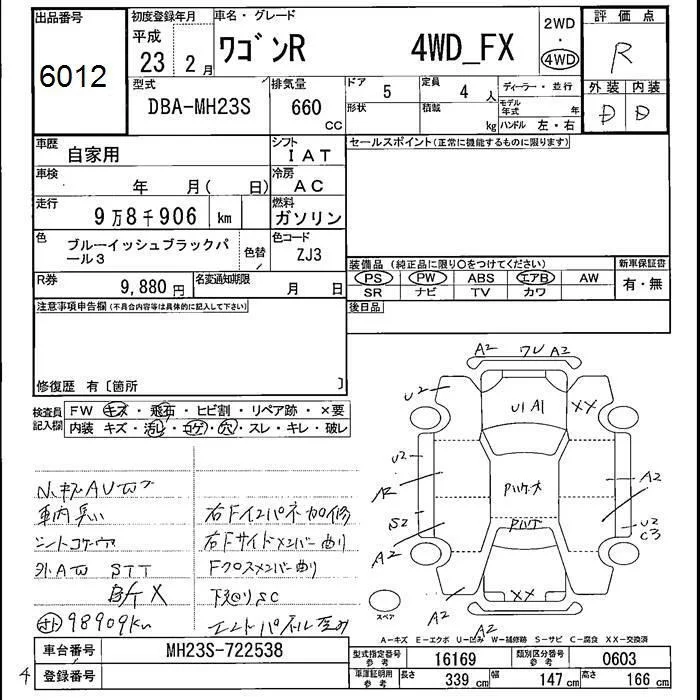 出品番号
6012
初度登録年月
平成
23 2月
車名・グレード
ワゴンR 4WD_FX
2WD
・
4WD
評価点
R
外装 内装
D D
型式
DBA-MH23S
排気量
660
CC
ドア
5
定員
4 人
形状
積載
kg
ディーラー・並行
モデル年式 年
ハンドル 左・右
車歴
自家用
シフト
IAT
セールスポイント(正常に機能するものに限ります)
車検
年 月( 日)
冷房
AC
走行
9万8千906 km
燃料
ガソリン
色
ブルーイッシュブラックパ
ール3
色替
色コード
ZJ3
装備品 (純正品に限り○をつけてください)
PS PW ABS エアB AW
SR ナビ TV カワ
新車保証書
有・無
R券
9,880 円
名変通知期限
月 日
後日品
注意事項申告欄(不具合内容等は具体的に記入して下さい)
修復歴 有〔箇所 〕
検査員
記入欄
FW キズ・飛石・ヒビ割・リペア跡・×要
内装 キズ・汚レ・コゲ・穴・スレ・キレ・破レ
車内臭い
外AW STT
98909km
右Fインパネ加修
右Fサイドメンバー曲り
Fクロスメンバー曲り
下廻りSC
A2 ワレ A2
U2
U1 A1
XX
U2
A2
S2
A2
A2
U2
C3
XX
A2
A2
スペア
A-キズ E-エクボ U-凹み W-補修跡 S-サビ C-腐食 XX-交換済
車台番号
MH23S-722538
登録番号
4
型式指定番号
参考
16169
類別区分番号
参考
0603
車庫証明用
参考
長さ 339 cm
幅 147 cm
高さ 166 cm